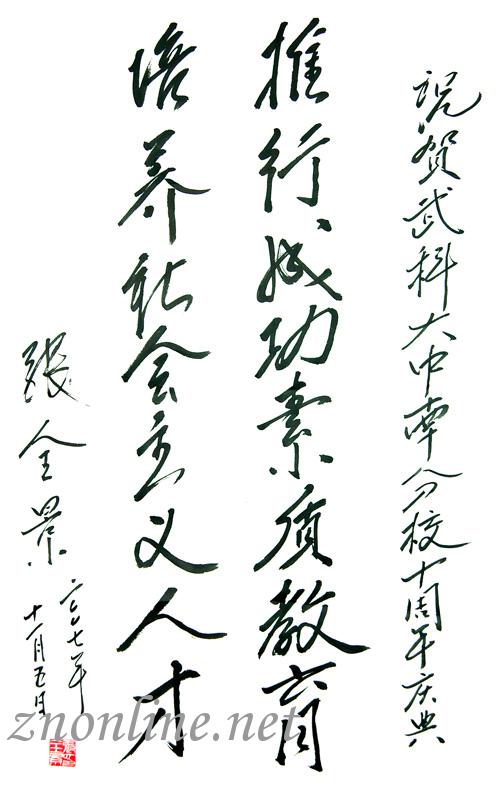 祝贺武科大中南分校十周年庆典
推行成功素质教育
培养社会主义人才
张全景
二〇〇七年
十一月五日
znonline.net